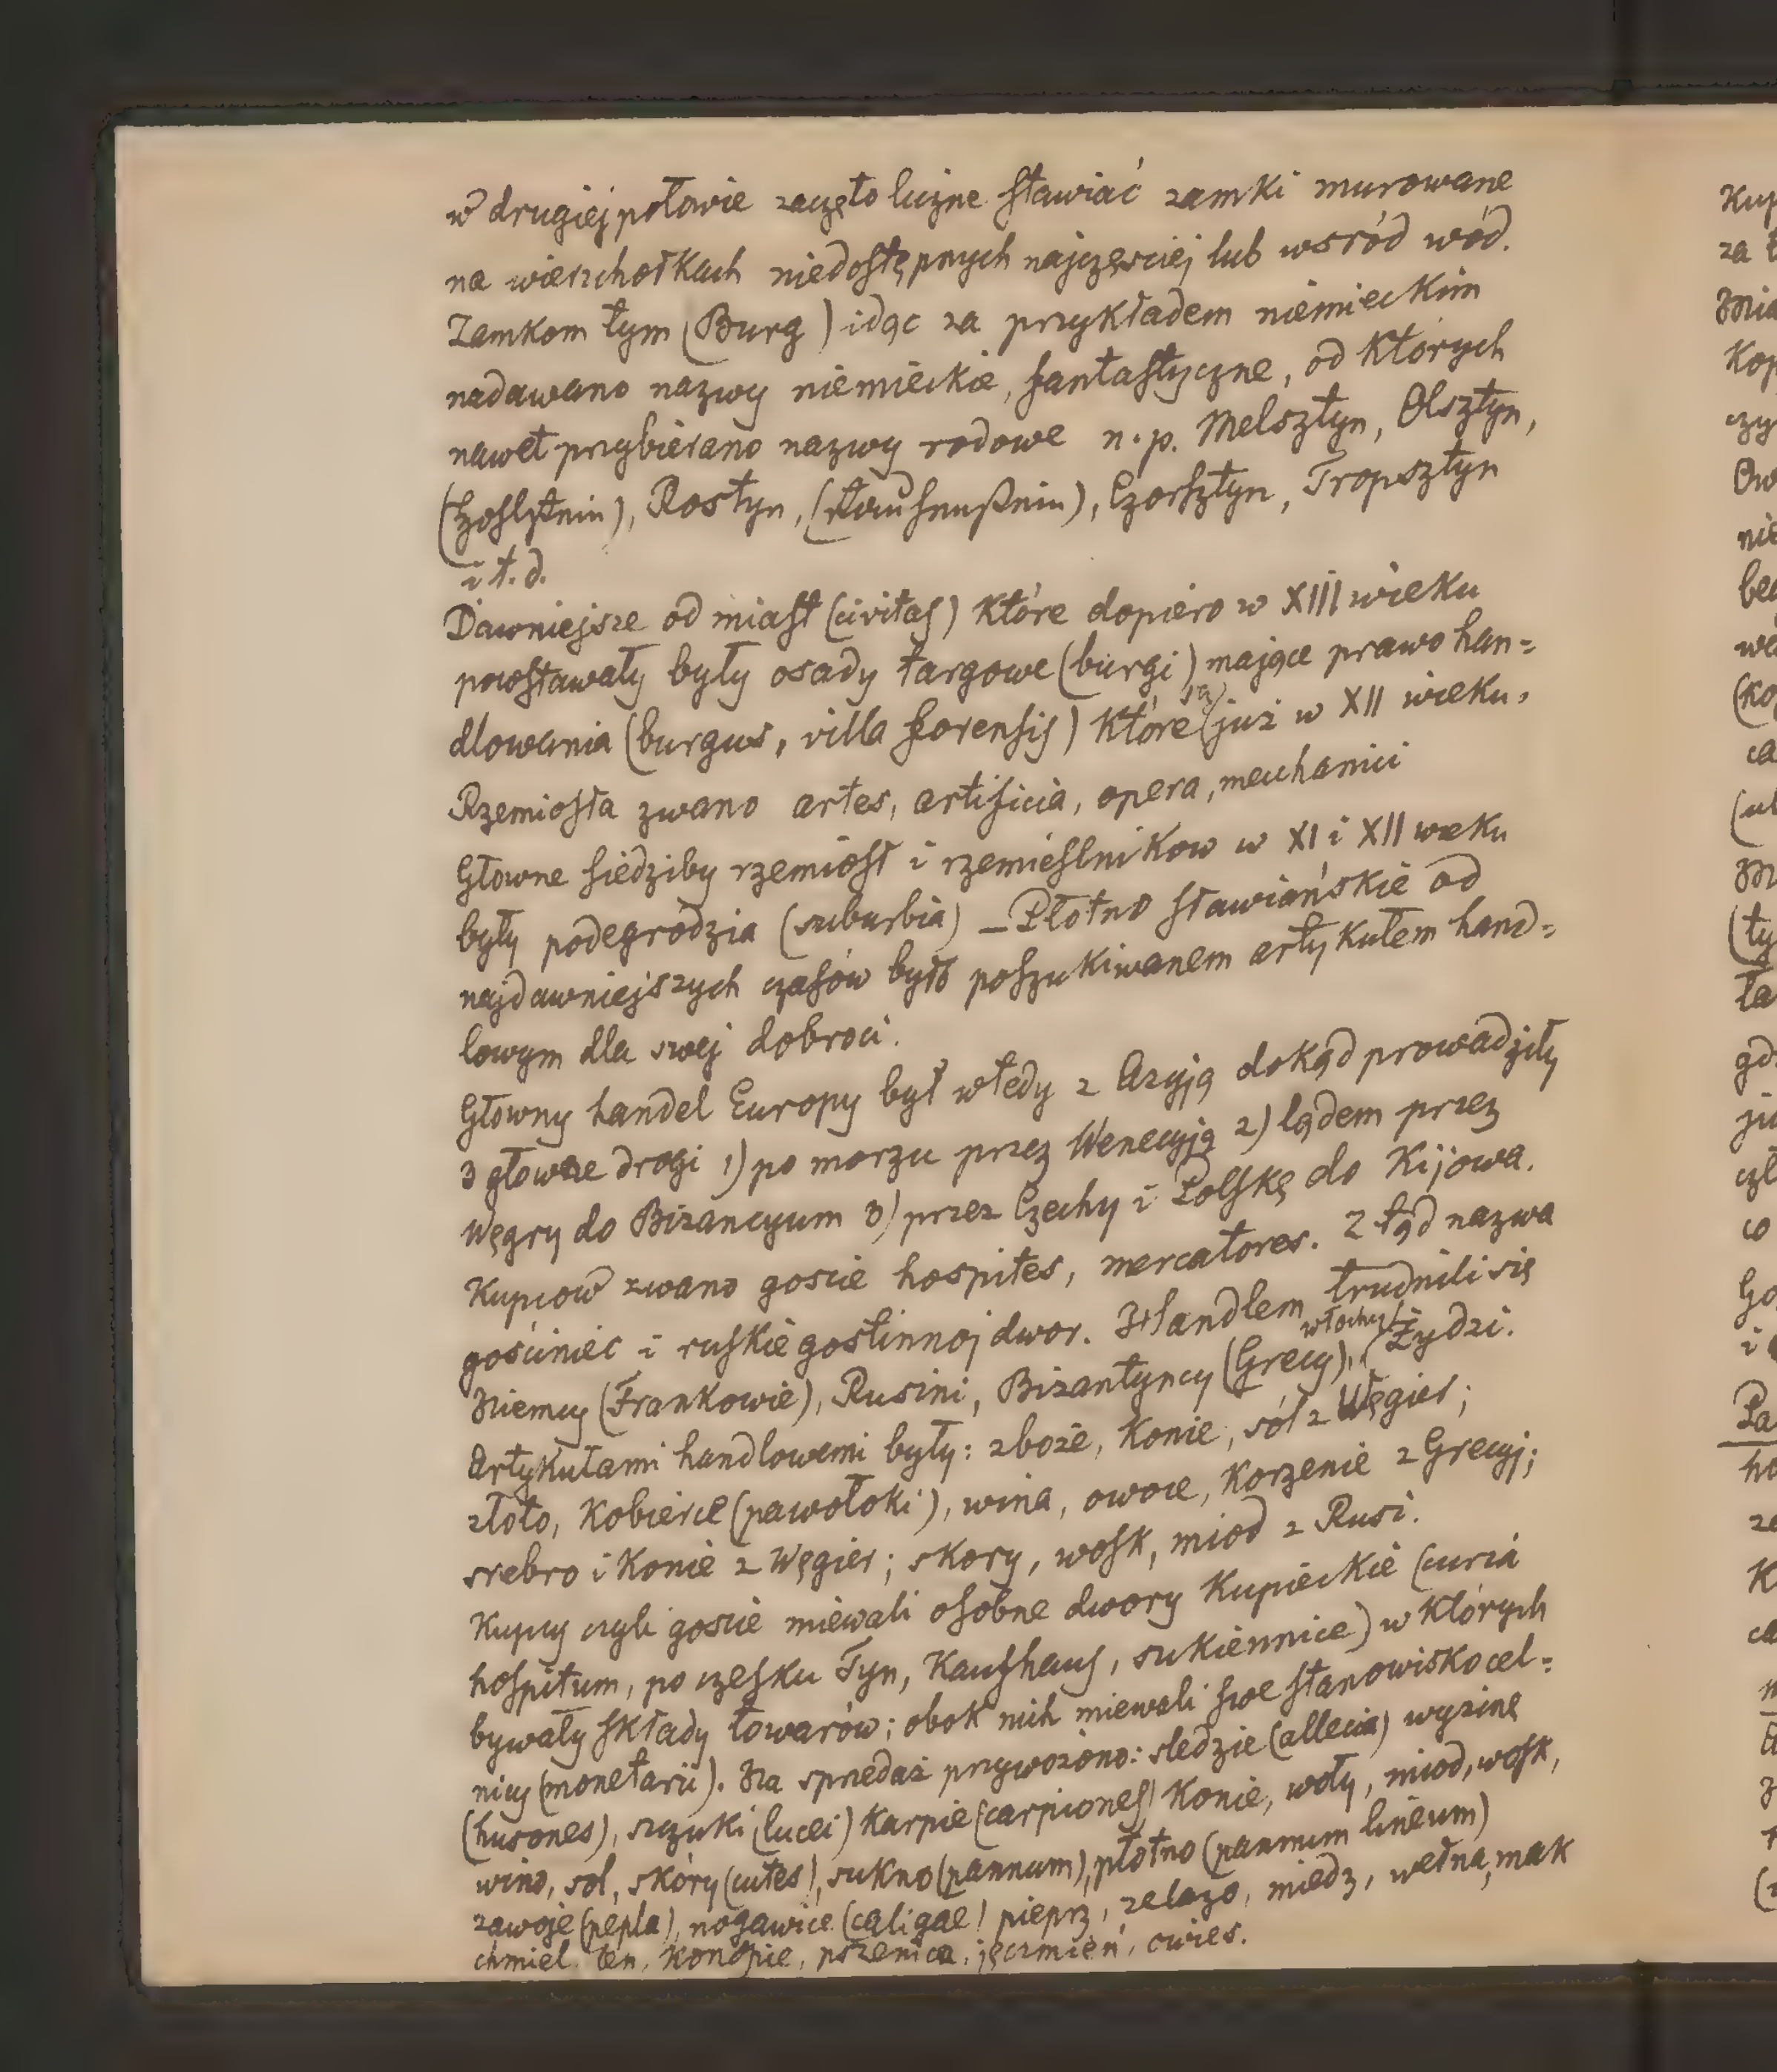 w drugiej połowie zaczęto liczne stawiać zamki murowane
na wierzchołkach niedostępnych najczęsciej lub wsród wód.
Zamkom tym (Burg) idąc za przykładem niemieckim
nadawano nazwy niemieckie, fantastyczne, od których
nawet przybierano nazwy rodowe n.p. Melsztyn, Olsztyn,
Rostyn, Czorsztyn, Tropsztyn
i t.d.
Dawniejsze od miast (civitas) które dopiero w XIII wieku
powstawały były osady targowe (burgi) mające prawo han=
dlowania (burgus, villa forensis) które są już w XII wieku.
Rzemiosła zwano artes, artificia, opera, mechanici
Głowne siedziby rzemiosł i rzemieslnikow w XI i XII wieku
były podegrodzia (suburbia) – Płotno sławiańskie od
najdawniejszych czasów było poszukiwanem artykułem hand=
lowym dla swej dobroci.
Głowny handel Europy był wtedy z Azyją dokąd prowadziły
3 głowne drogi 1) po morzu przez Wenecyją 2) lądem przez
Węgry do Bizancyum 3) przez Czechy i Polskę do Kijowa.
Kupców zwano goscie hospites, mercatores. Ztąd nazwa
gościniec i ruskie gostinnoj dwor. Handlem trudnili się
Niemcy (Frankowie), Rusini, Bizantyncy (Grecy), włochy i Żydzi.
Artykułami handlowemi były: zboże, konie, sól z Węgier;
złoto, kobierce (pawołoki), wina, owoce, korzenie z Grecyj;
srebro i konie z Węgier; skory, wosk, miod z Rusi.
Kupcy czyli goscie miewali osobne dwory kupieckie (curia
hospitum, po czesku Tyn, Kaufhaus, sukiennice) w których
bywały składy towarów; obok nich miewali swe stanowisko cel=
nicy (monetarii). Na sprzedaż przywożono: sledzie (allecia) wyzine
(husones), szczuki (lucei) karpie (carpiones) konie, woły, miod, wosk,
wino, sol, skóry (cutes), sukno (pannum), płotno (pannum lineum)
zawoje (pepla), nogawice (caligae) pieprz, zelazo, miedz, wełna, mak
chmiel, len, konopie, pszenica, jęczmień, owies.